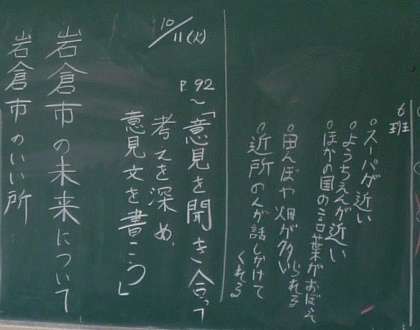 6班
。スーパが近い
。ようちえんが近い
。ほかの国の言葉がおぼえ
られる
。田んぼや畑が多い
。近所の人が話しかけて
くれる
10/11(火)
P92~「意見を聞き合って
考えを深め、
意見文を書こう」
岩倉市の未来について
岩倉市のいい所